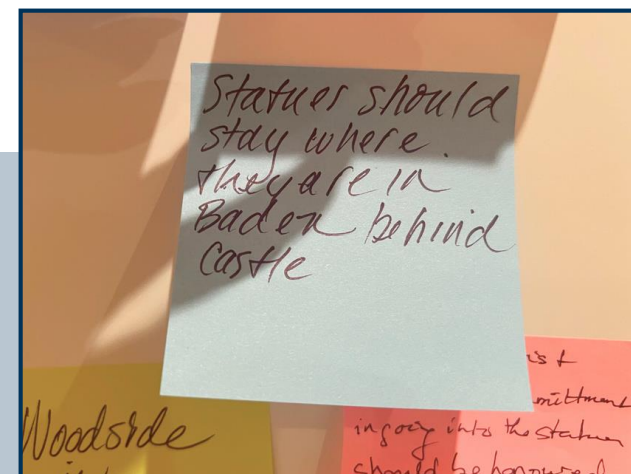 Statues should
stay where
they are in
Baden behind
Castle
Woodside
ist
mittment
ingoing into the statues
should be honoured